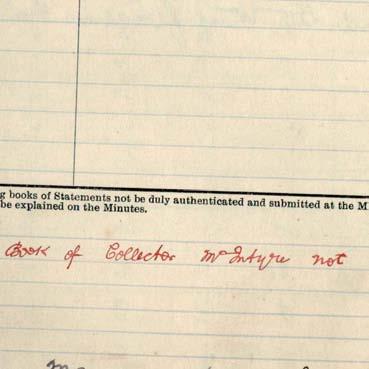 g books of Statements not be duly authenticated and submitted at the M
be explained on the Minutes.
Book of Collector McIntyre not